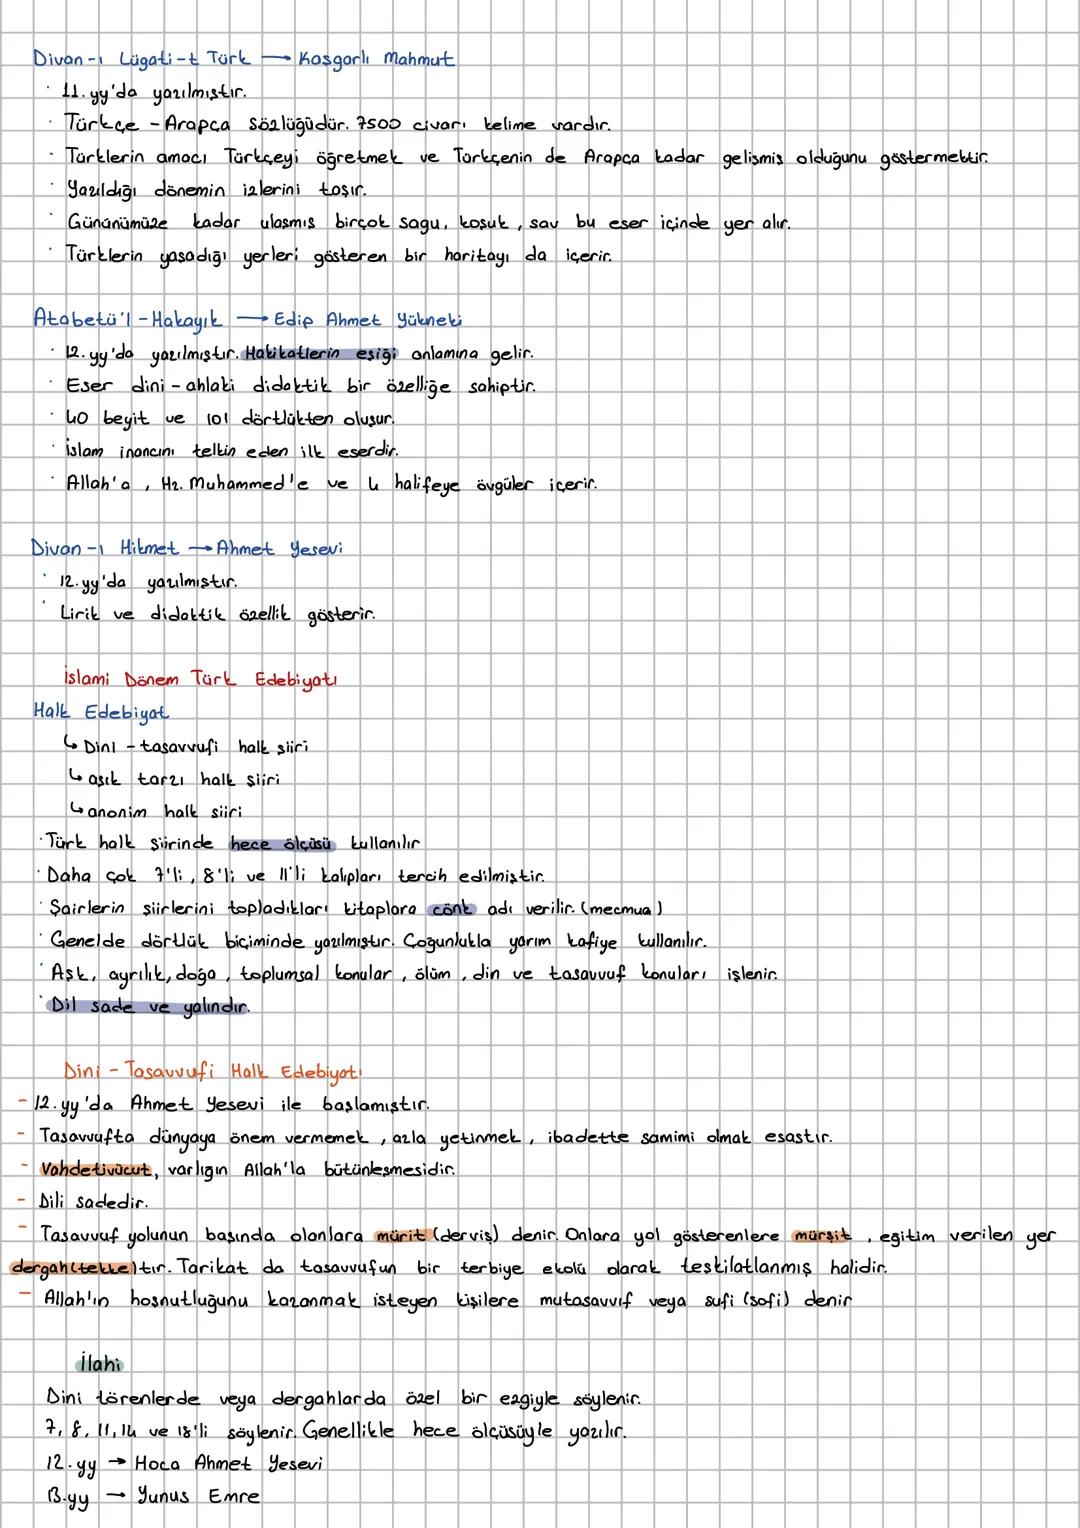 Divan-ı Lügati-t Türk → Kaşgarlı Mahmut
· 11.yy'da yazılmıştır.
· Türkçe - Arapça Sözlüğüdür. 7500 civarı kelime vardır.
· Türklerin amacı Türkçeyi öğretmek ve Türkçenin de Arapça kadar gelişmiş olduğunu göstermektir.
· Yazıldığı dönemin izlerini taşır.
· Günümüze kadar ulaşmış birçok sagu, koşuk, sav bu eser içinde yer alır.
· Türklerin yaşadığı yerleri gösteren bir haritayı da içerir.
Atabetü'l-Hakayık → Edip Ahmet Yükneki
· 12.yy'da yazılmıştır. Hakikatlerin eşiği anlamına gelir.
· Eser dini - ahlaki didaktik bir özelliğe sahiptir.
· 40 beyit ve 101 dörtlükten oluşur.
· İslam inancını telkin eden ilk eserdir.
· Allah'a, Hz. Muhammed'e ve 4 halifeye övgüler içerir.
Divan-ı Hikmet → Ahmet Yesevi
· 12.yy'da yazılmıştır.
· Lirik ve didaktik özellik gösterir.
İslami Dönem Türk Edebiyatı
Halk Edebiyat
↳ Dinı - tasavvufi halk şiiri
↳ aşık tarzı halk şiiri
↳ anonim halk şiiri
· Türk halk şiirinde hece ölçüsü kullanılır
· Daha çok 7'li, 8'li ve 11'li kalıpları tercih edilmiştir.
· Şairlerin şiirlerini topladıkları kitaplara cönk adı verilir. (mecmua)
· Genelde dörtlük biçiminde yazılmıştır. Çoğunlukla yarım kafiye kullanılır.
· Aşk, ayrılık, doğa, toplumsal konular, ölüm, din ve tasavvuf konuları işlenir.
· Dil sade ve yalındır.
Dini - Tasavvufi Halk Edebiyatı
- 12.yy'da Ahmet Yesevi ile başlamıştır.
- Tasavvufta dünyaya önem vermemek, azla yetinmek, ibadette samimi olmak esastır.
- Vahdetivücut, varlığın Allah'la bütünleşmesidir.
- Dili sadedir.
- Tasavvuf yolunun başında olanlara mürit (derviş) denir. Onlara yol gösterenlere mürşit, eğitim verilen yer
dergah(tekke)tır. Tarikat da tasavvufun bir terbiye ekolü olarak teşkilatlanmış halidir.
- Allah'ın hoşnutluğunu kazanmak isteyen kişilere mutasavvıf veya sufi (sofi) denir
İlahi
Dini törenlerde veya dergahlarda özel bir ezgiyle söylenir.
7, 8, 11, 14 ve 18'li söylenir. Genellikle hece ölçüsüyle yazılır.
12.yy → Hoca Ahmet Yesevi
13.yy → Yunus Emre